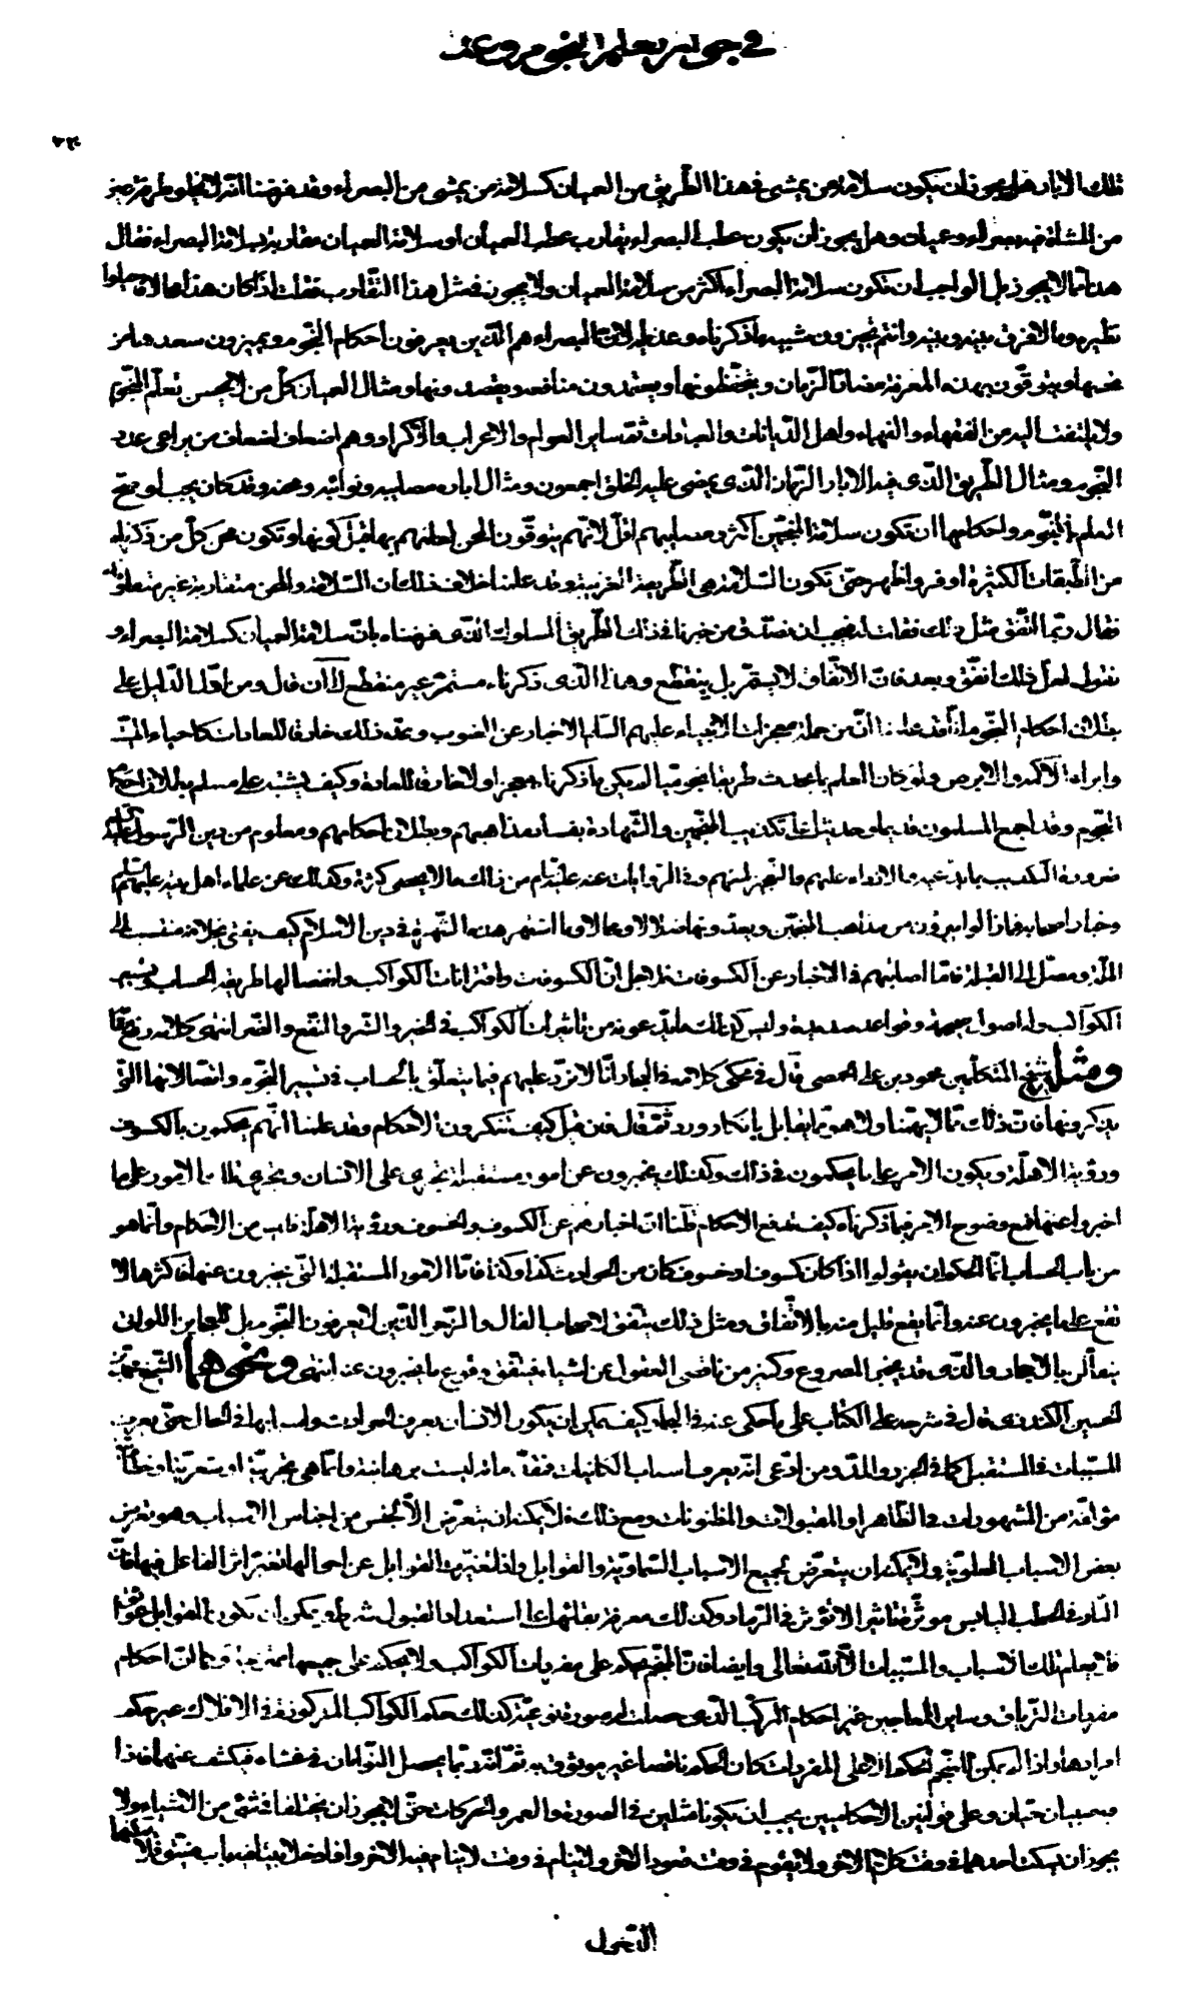 في جواز تعلم النجوم وعدمه
تلك الابار هل يجوز ان يكون سلامة من يمشى في هذا الطريق من العميان كسلامة من يمشى من البصراء وقد فرضنا انه لا يخلو طرفة عين
من المشاة فيه بصراء وعميان وهل يجوز ان يكون عطب البصراء يقارب عطب العميان او سلامة العميان مقاربة لسلامة البصراء فقال
هذا مما لا يجوز بل الواجب ان تكون سلامة البصراء اكثر من سلامة العميان ولا يجوز في مثل هذا التقارب فقلت اذا كان هذا محالا فاحيلوا
نظيره وما لا فرق بينه وبينه وانتم تجيزون شبيه ما ذكرناه وعديله لان البصراء هم الذين يعرفون احكام النجوم ويميزون سعدها من
نحسها ويتوقون بهذه المعرفة مضار الزمان ويتخطونها ويعتمدون منافعه ويقصدونها ومثال العميان كل من لا يحسن تعلم النجوم
ولا يلتفت اليه من الفقهاء والفهماء واهل الديانات والعبادات ثم ساير العوام والاعراب والاكراد وهم اضعاف اضعاف من يراعى عدد
النجوم ومثال الطريق الذى فيه الابار الزمان الذى يمضى عليه الخلق اجمعون ومثال اباره مصائبه ونوائبه ومحنه وقد كان يجب لو صح
العلم بالنجوم واحكامها ان تكون سلامة المنجمين اكثر ومصائبهم اقل لانهم يتوقون المحن لعلمهم بها قبل كونها وتكون محن كل من ذكرناه
من الطبقات الكثيرة اوفر واظهر حتى تكون السلامة هى الطريفة الغريبة وقد علمنا خلاف ذلك فان السلامة والمحن متقاربة غير متفاوتة
فقال ربما اتفق مثل ذلك فقلت له فيجب ان نصدق من خبرنا في ذلك الطريق المسلوك الذى فرضناه بان سلامة العميان كسلامة البصراء و
نقول لعل ذلك اتفق وبعد فان الاتفاق لا يستمر بل ينقطع وهذا الذى ذكرناه مستمر غير منقطع الى ان قال ومن اقوى الدليل على
بطلان احكام النجوم انا قد علمنا ان من جملة معجزات الانبياء عليهم السلام الاخبار عن الغيوب وعد ذلك خارقا للعادات كاحياء الميت
وابراء الاكمه والابرص ولو كان العلم بما يحدث طريقا نجوميا لم يكن ما ذكرناه معجزا ولا خارقا للعادة وكيف يشتبه على مسلم بطلان احكام
النجوم وقد اجمع المسلمون قديما وحديثا على تكذيب المنجمين والشهادة بفساد مذاهبهم وبطلان احكامهم ومعلوم من دين الرسول
ضرورة التكذيب بما يدعيه المنجمون والازراء عليهم والتعجيز لهم وفي الروايات عنه عليه السلام من ذلك ما لا يحصى كثرة وكذلك عن علماء اهل بيته عليهم السلم
وخيار اصحابه فما زالوا يبرؤن من مذاهب المنجمين ويعدونها ضلالا ومحالا وما اشتهر هذه الشهرة في دين الاسلام كيف يفتى بخلافه منتسب الى
الملة ومصل الى القبلة فاما اصابتهم في الاخبار عن الكسوفات فلاجل ان الكسوفات واقترانات الكواكب وانفصالها طريقه الحساب وتسيير
الكواكب وله اصول صحيحة وقواعد سديدة وليس كذلك ما يدعونه من تاثيرات الكواكب في الخير والشر والنفع والضر انتهى كلامه رفع مقامه
ومثل شيخ المتكلمين محمود بن على الحمصى قال في محكى كلامه في البحار انا لا نرد عليهم فيما يتعلق بالحساب في تسيير النجوم واتصالاتها التى
يذكرونها فان ذلك مما لا يهمنا ولا هو مما يقابل بانكار ورد ثم قال فان قيل كيف تنكرون الاحكام وقد علمنا انهم يحكمون بالكسوف
ورؤية الاهلة ويكون الامر على ما يحكمون في ذلك وكذلك يخبرون عن امور مستقبلة تجرى على الانسان وتجرى تلك الامور على ما
اخبروا عنها فمع وضوح الامر فيما ذكرناه كيف تدفع الاحكام قلنا ان اخبارهم عن الكسوف والخسوف ورؤية الاهلة فليس من الاحكام وانما هو
من باب الحساب انما الحكم ان يقولوا اذا كان كسوف او خسوف كان من الحوادث كذا وكذا فاما الامور المستقبلة التى يخبرون عنها فاكثرها لا
تقع على ما يخبرون عنه وانما يقع قليل منه بالاتفاق ومثل ذلك يتفق لاصحاب الفال والزجر الذين لا يعرفون النجوم بل للعجايز اللواتى
يتفألن بالاحجار والذى قد يخبر المصروع وكثير من ناقصى العقول عن اشياء فيتفق وقوع ما يخبرون عنه انتهى ونحوهما الشيخ محمد بن
الحسين الكندرى قال في شرحه على الكتاب على ما حكى عنه في البحار كيف يمكن ان يكون الانسان يعرف الحوادث واسبابها في الحال حتى يعرف
المسببات في المستقبل كما في الجزر والمد ومن ادعى انه يعرف اسباب الكائنات فمقدماته ليست برهانية وانما هى تجربية او شعرية او خطابية
مؤلفة من المشهورات في الظاهر او المقبولات والمظنونات ومع ذلك فلا يمكنه ان يتعرض الا لجنس من اجناس الاسباب وهو تعرض
بعض الاسباب العلوية ولا يمكنه ان يتعرض لجميع الاسباب السماوية والقوابل واذا تغيرت القوابل عن احوالها تغير اثر الفاعل فيها فان
النار في الحطب اليابس مؤثرة تاثيرا لا تؤثر في الرماد وكذلك معرفة بقائها على استعداد القبول شرط ويمكن ان يكون للقوابل عوائق
فلا يعلم تلك الاسباب والمسببات الا الله تعالى وايضا فان المنجم يحكم على مفردات الكواكب ولا يحكم على جميعها ممتزجة وكما ان احكام
مفردات الترياق وساير المعاجين غير احكام المركب الذى حصلت له صورة نوعية كذلك حكم الكواكب المركوزة في الافلاك غير حكم
افرادها واذا لم يمكن للمنجم الحكم الا على المفردات كان الحكم ناقصا غير موثوق به ثم انه ربما يحصل التوامان في غشاء فيكشف عنهما فاذا
فيه صبيان حيان وعلى قوانين الاحكاميين يجب ان يكونا مثلين في الصورة والعمر والحركات حتى لا يجوز ان يختلفا في شيئ من الاشياء ولا
يجوز ان يسكت احدهما في وقت كلام الاخر ولا يقوم في وقت قعود الاخر ولا ينام في وقت لا ينام فيه الاخر واذا دخلا بيتا فيه باب ضيق فلا يمكنهما
الدخول